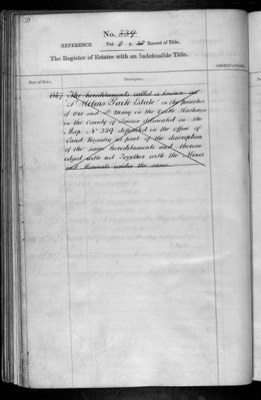 No. 339
REFERENCE Vol. p. Record of Title.
The Register of Estates with an Indefeasible Title.
OBSERVATIONS.
Date of Entry. Description.
1867 The hereditaments called or known as
"St Helens Park Estate" in the parishes
of Ore and St Mary in the Castle Hastings
in the County of Sussex delineated on the
Map No 339 deposited in the office of
Land Registry as part of the description
of the same hereditaments and thereon
edged with red Together with the Mines
and Minerals under the same